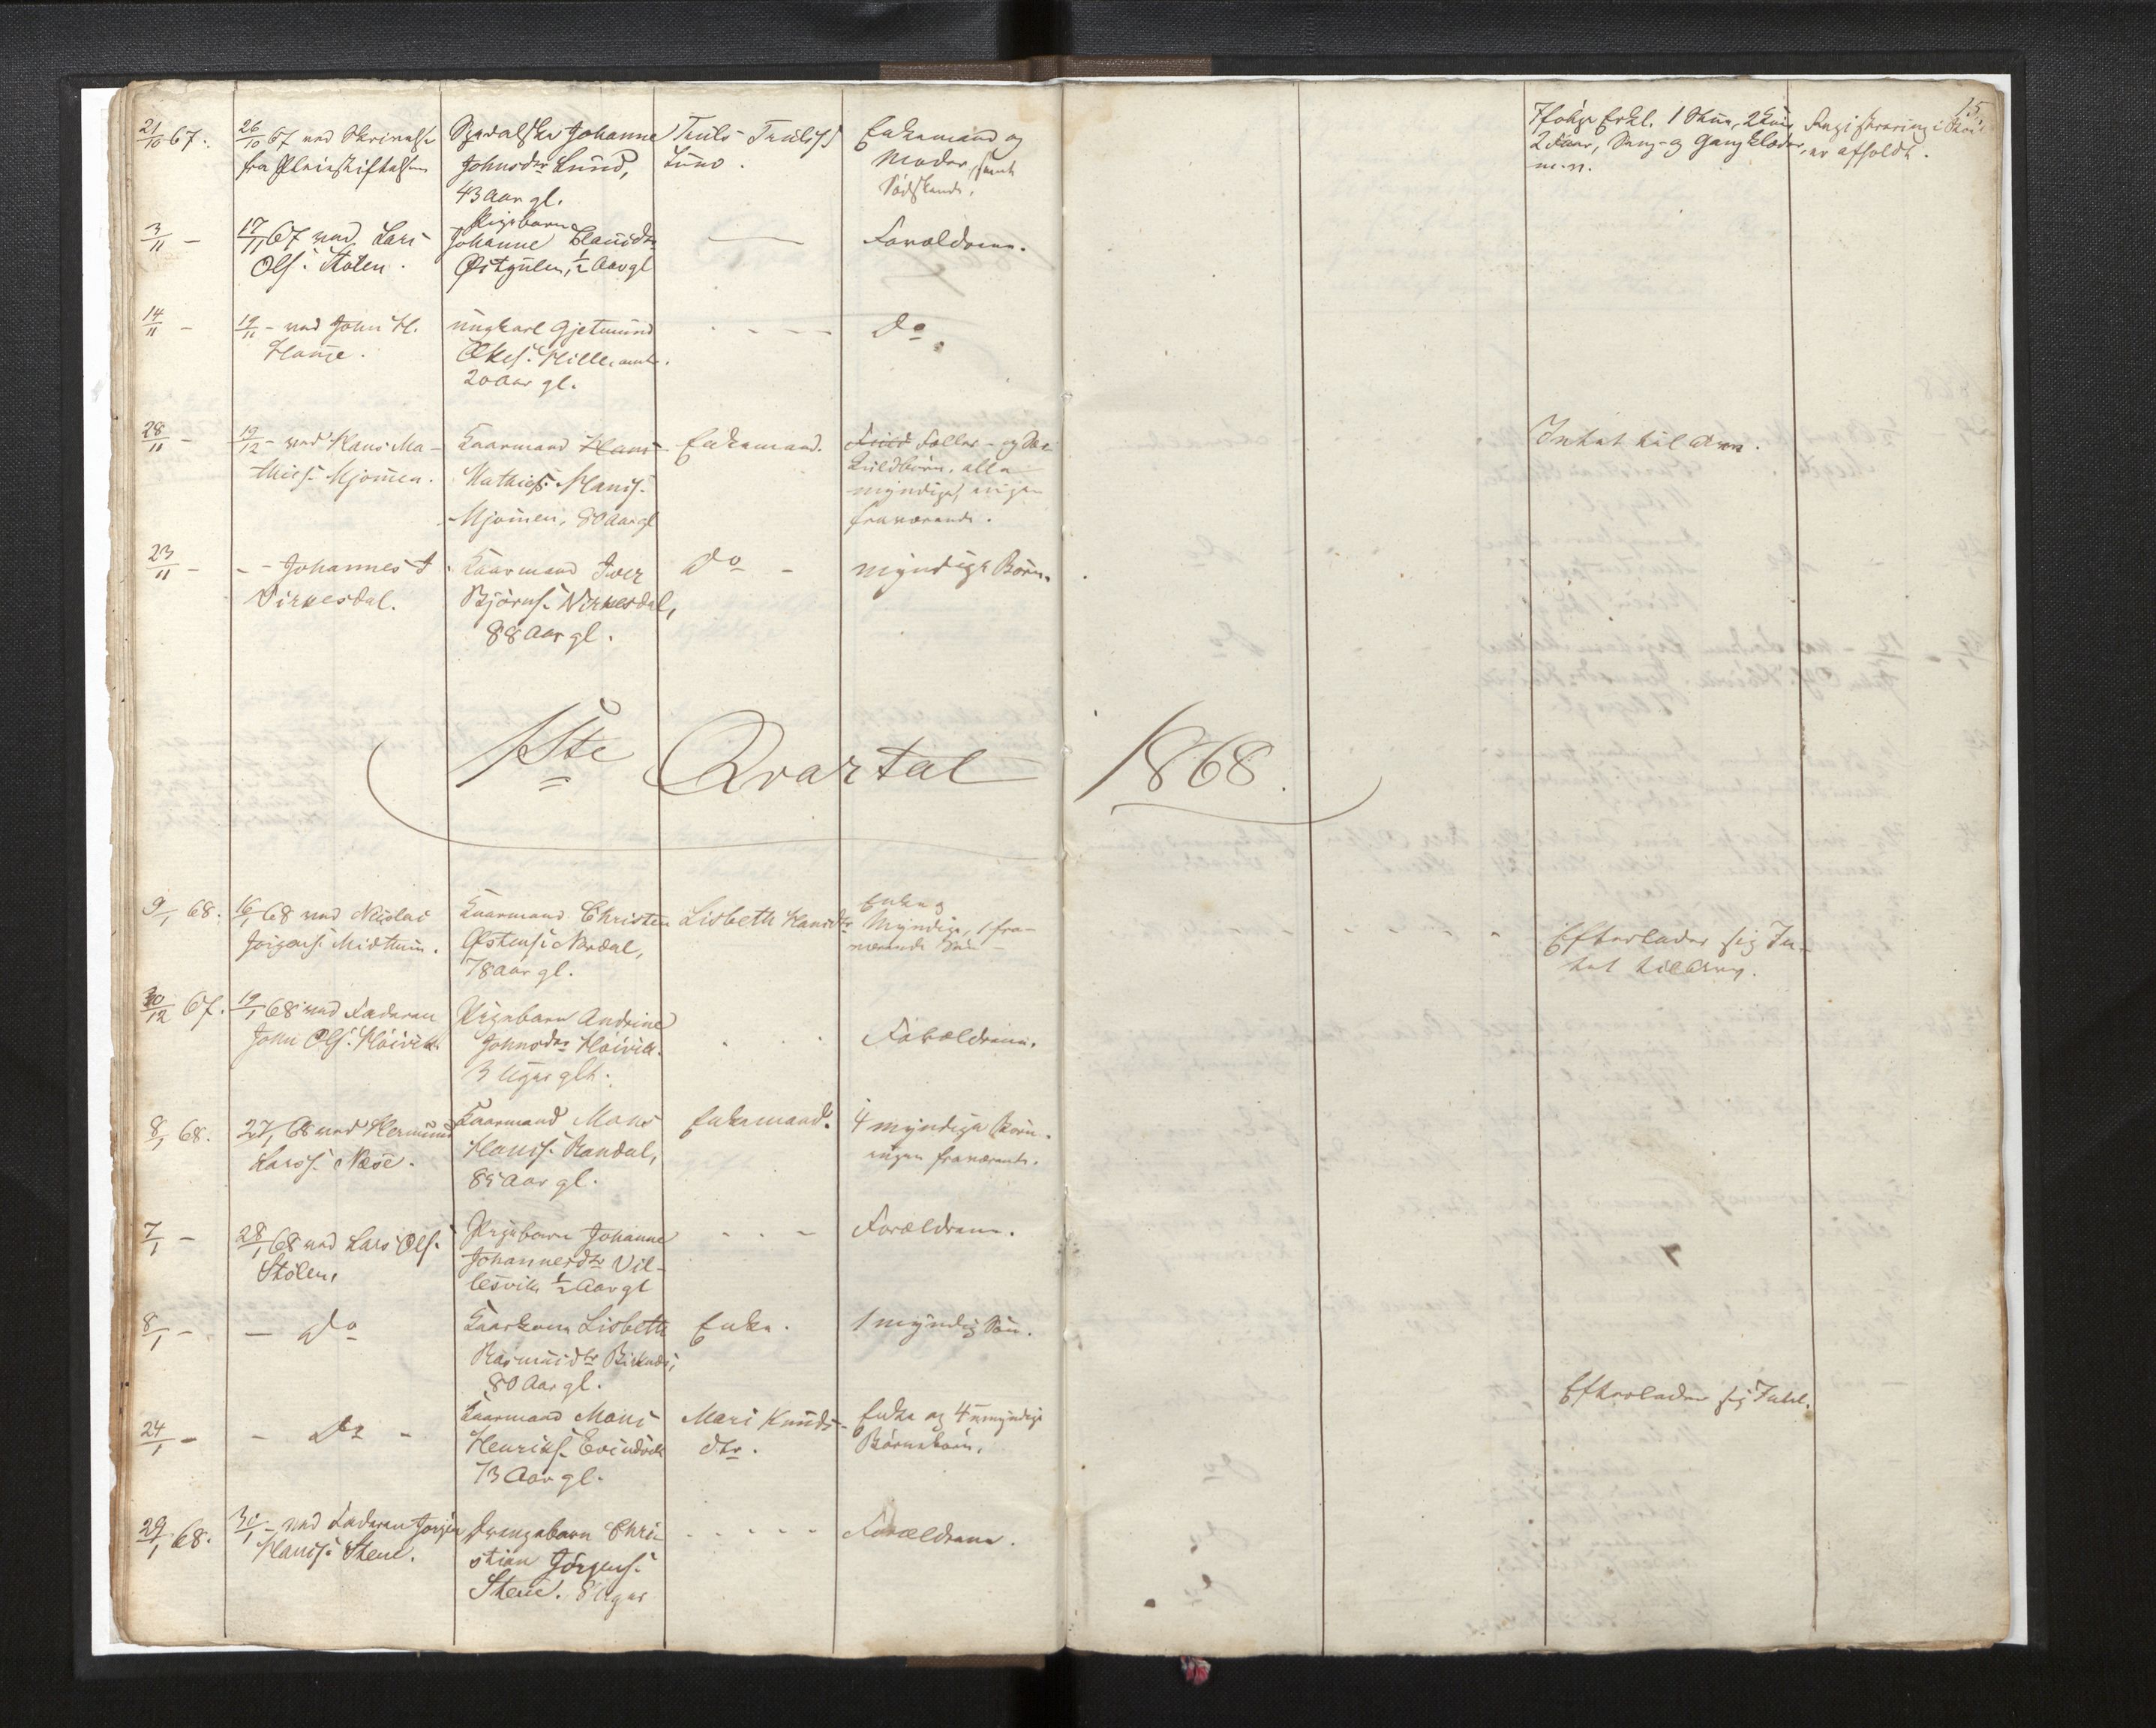 15
21/10 67.
26/10 67 ved Skrivelse
fra Pleiestiftelsen
Spedalske Johanne
Johnsdr Lund,
43 Aar gl.
Truls Trulss
Lund.
Enkemand og
Moder, samt
Sødskende.
Ifølge Erkl. 1 Skrin, 2 Kiør,
2 Faar, Seng- og Gangklæder,
m.v.
Registrering i
er afholdt.
3/11 -
17/11 67 ved Lars
Ols. Stølen.
Pigebarn
Johanne
Østgulen, 1/2 Aar gl
Forældrene.
14/11 -
19/11 - ved John H.
Hauge.
Ungkarl Gjetmund
Akss. Hille
20 Aar gl.
Do
28/11 -
19/12 - ved Hans Ma-
thies. Mjømen.
Kaarmand Hans
Mathias Hans.
Mjømen, 80 Aar gl
Enkemand.
Fuld Fælles- og Sær
kuldbørn, alle
myndige, ingen
fraværende.
Intet til Arv.
23/11 -
- - Johannes I
Virkesdal.
Kaarmand Iver
Bjørns. Virkesdal,
88 Aar gl.
Do -
myndige Børn.
1ste Qvartal 1868.
9/1 68.
16/1 68 ved Nicolai
Jørgens. Midthun.
Kaarmand Christen
Østens. Nordal,
78 Aar gl.
Lisbeth Hansdtr
Enke og
Myndige, 1 fra-
værende Søn -
Efterlader sig In-
tet til Arv.
30/12 67.
19/1 68 ved Faderen
John Ols. Høivik.
Pigebarn Andrine
Johnsdr Høivik.
3 Uger glt.
Forældrene.
8/1 68.
27/1 68 ved Hermund
Larss. Næse.
Kaarmand Mons
Hans. Randal,
85 Aar gl.
Enkemand.
4 myndige Børn.
ingen fraværende.
7/1 -
28/1 68 ved Lars Ols.
Stølen,
Pigebarn Johanne
Johannesdtr Vil-
lesvik 1/2 Aar gl
- - -
Forældrene.
8/1 -
- Do
Kaarkone Lisbeth
Rasmusdtr
80 Aar gl.
Enke.
1 myndig Søn.
24/1 -
- Do -
Kaarmand Mons
Henriks. Evindvik
73 Aar gl.
Mari Knuds-
dtr.
Enke og 4 umyndige
Børnebørn.
Efterlader sig Intet.
29/1 68.
30/1 - ved Faderen Jørgen
Hans. Stene.
Drengebarn Chri-
stian Jørgens.
Stene. 8 Uger
- - - - -
Forældrene.